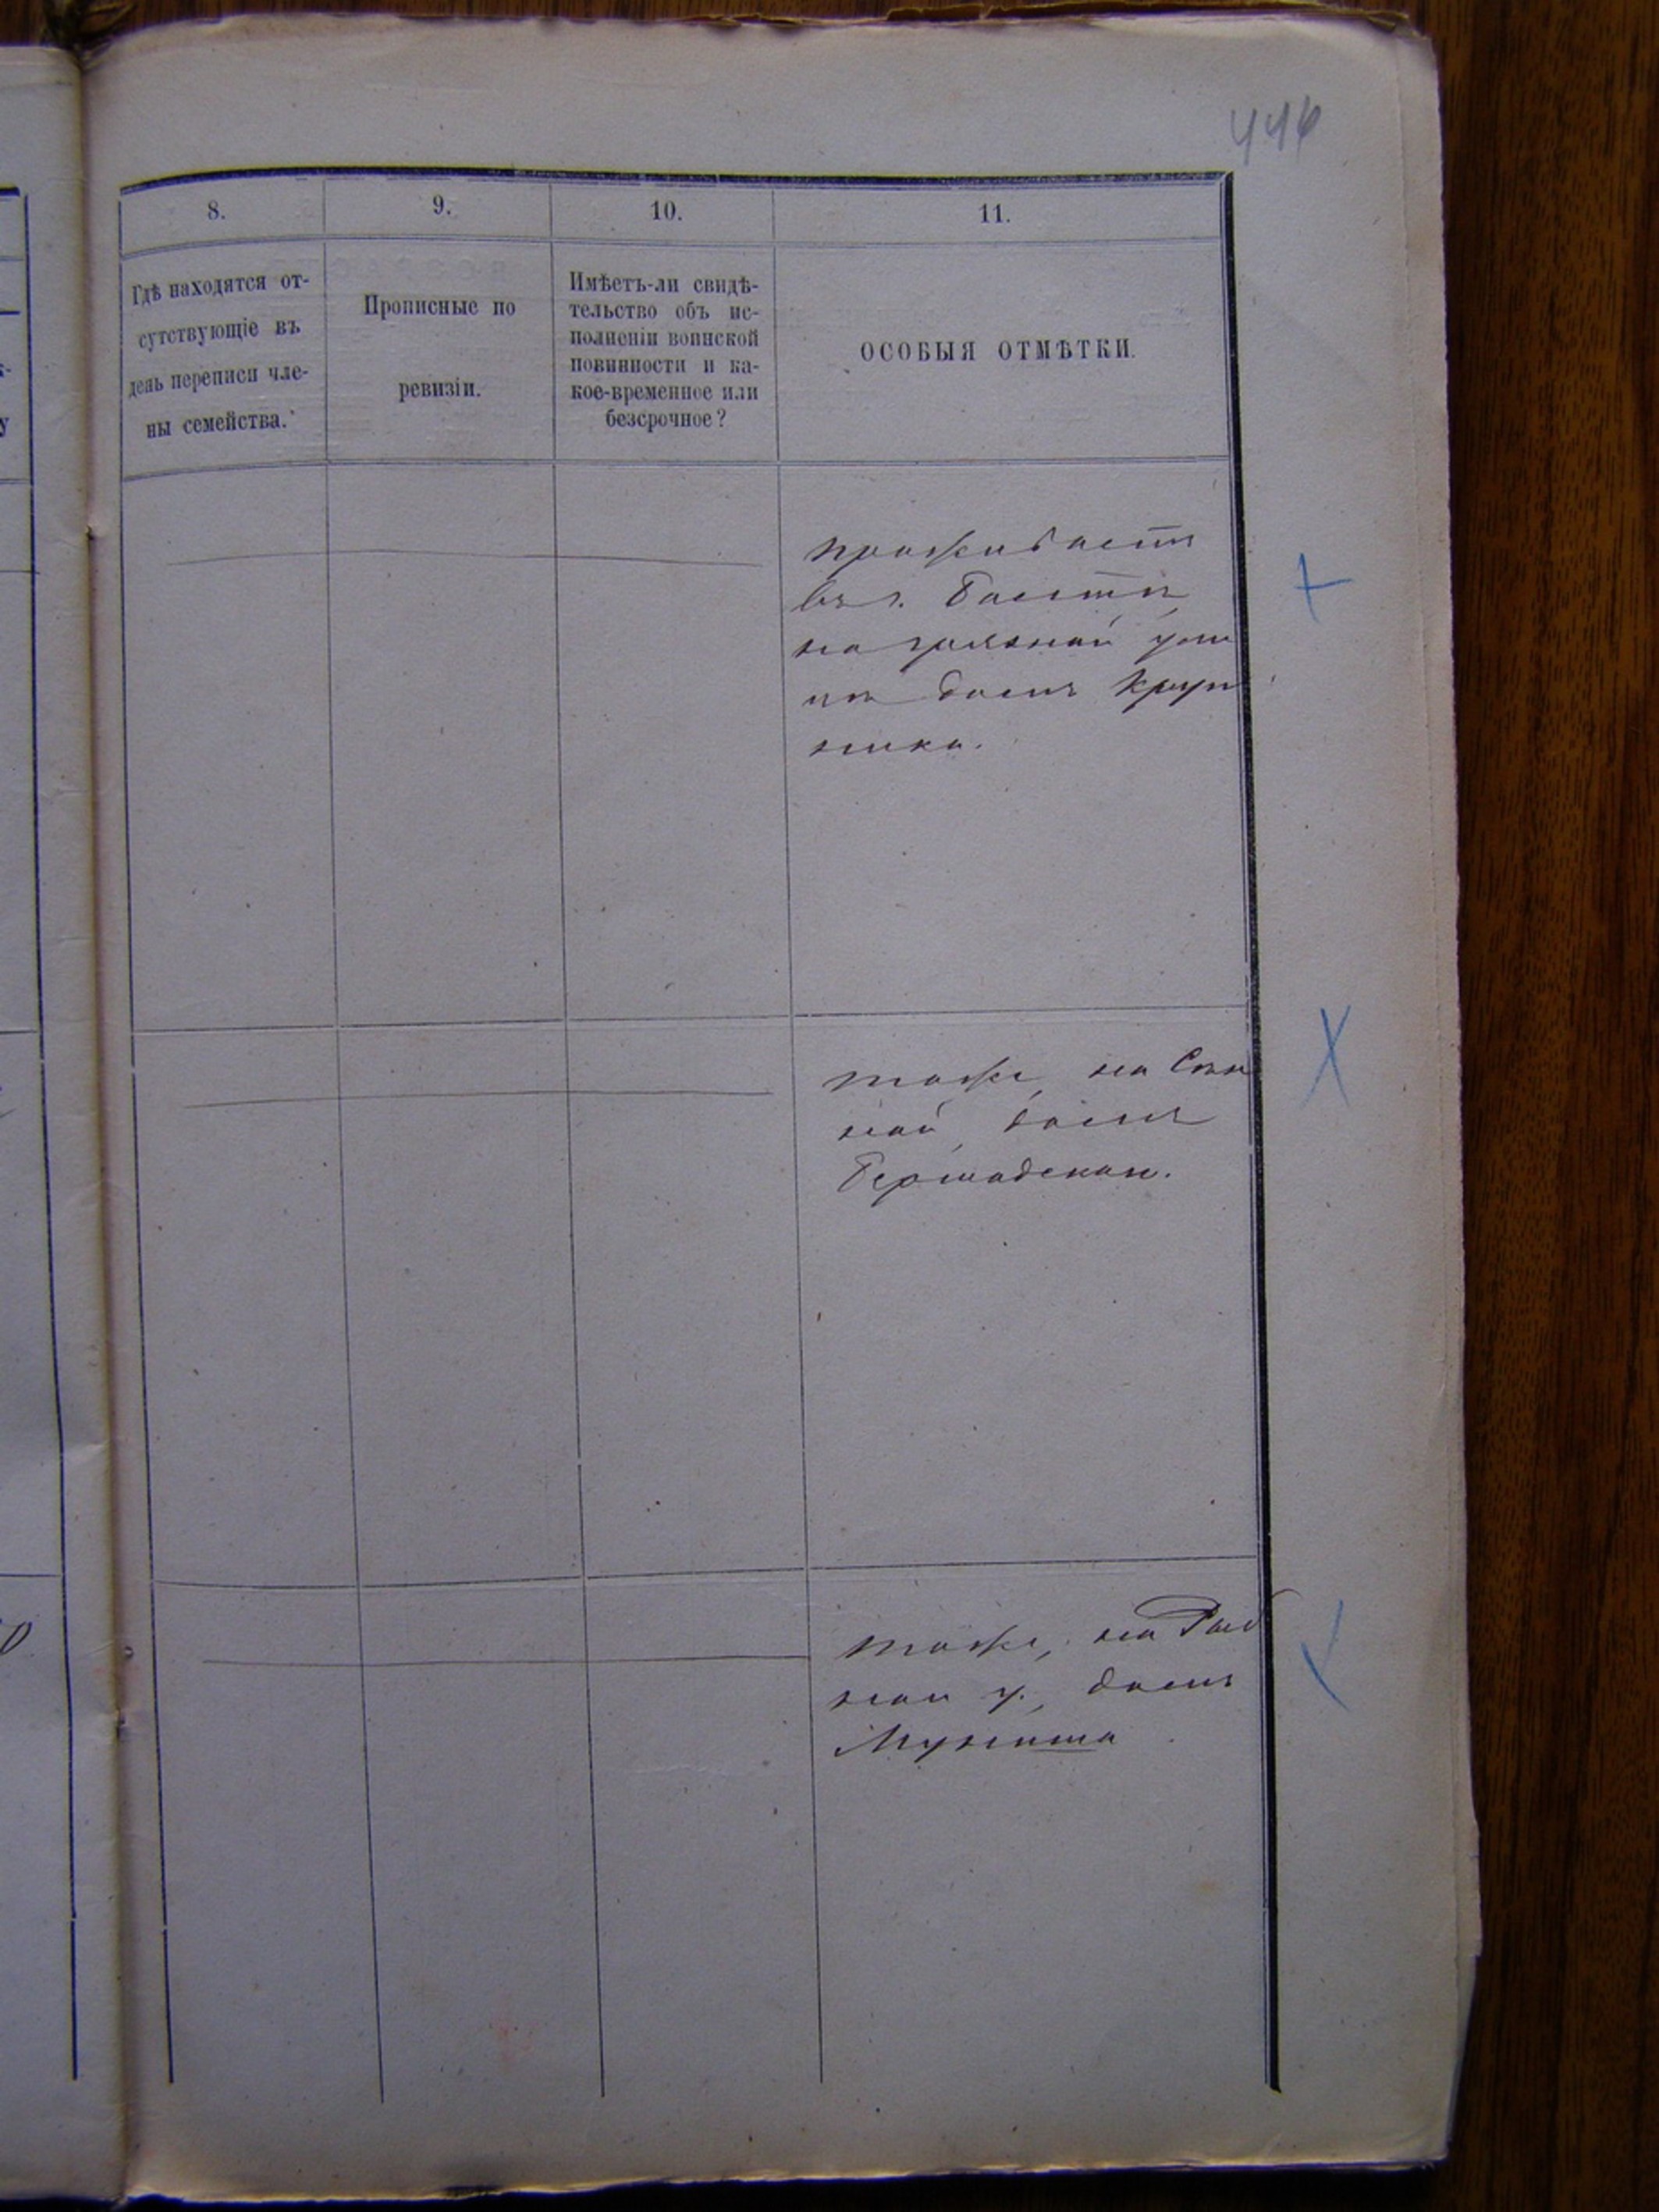 446
8.
9.
10.
11.
Гдѣ находятся от-
сутствующіе въ
день переписи чле-
ны семейства.
Прописные по
ревизіи.
Имѣетъ-ли свидѣ-
тельство объ ис-
полненіи воинской
повинности и ка-
кое-временное или
безсрочное?
ОСОБЫЯ ОТМѢТКИ.
проживаетъ
въ г. Балтѣ
на грязной ули
цѣ домъ Круп
ника.
тоже, на Сѣн
ной, домъ
Бершадской.
тоже, на Рыб
ной у., домъ